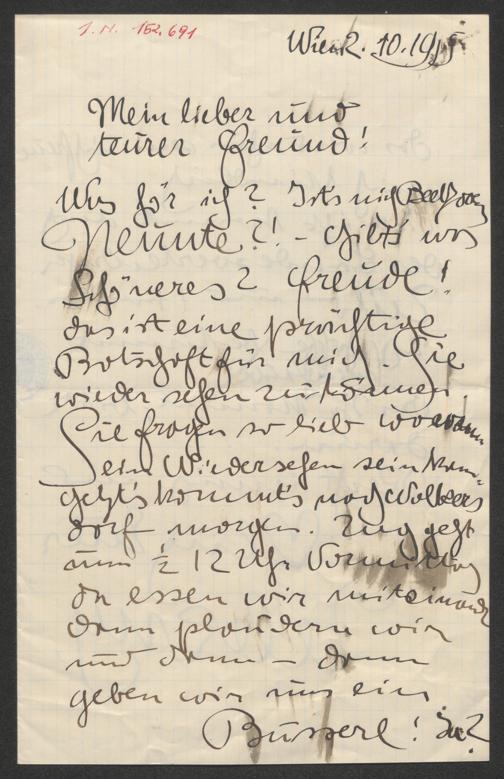 I. N. 152.691
Wien 2. 10. 19
Mein lieber und
teurer Freund!
Was hör ich? Ists nicht Beethovens
Neunte?! - Gibts was
Schöneres? Freude!
das ist eine prächtige
Botschaft für mich. Sie
wieder sehen zu können!
Sie fragen so lieb wo wann
ein Wiedersehen sein kann.
Jetzt's kommt's nach Wolbers
dorf morgen. Zug geht
um ½ 12 Uhr Vormittag
da essen wir miteinander
dann plaudern wir
und dann - dann
geben wir uns ein
Busserl! Ja?